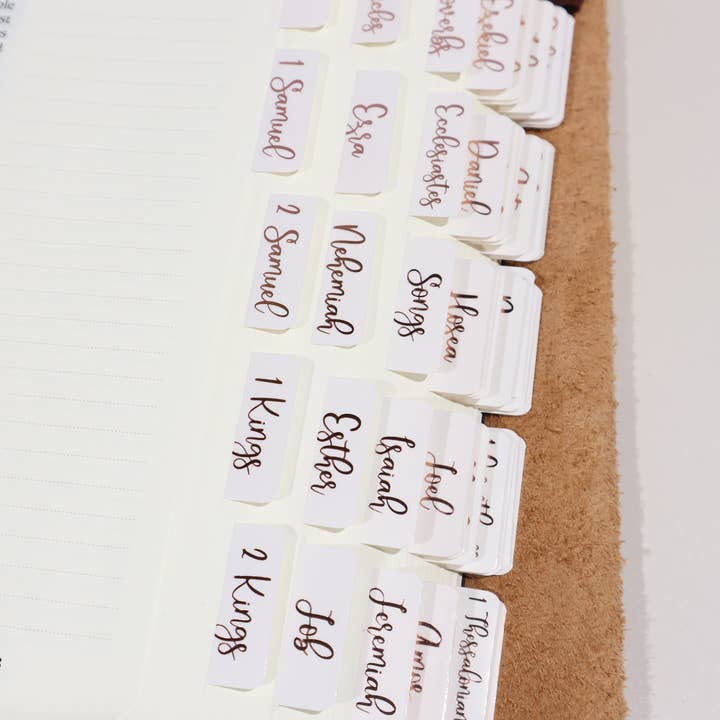 1 Samuel
2 Samuel
1 Kings
2 Kings
Ezra
Nehemiah
Esther
Job
Ecclesiastes
Songs
Isaiah
Jeremiah
Ezekiel
Daniel
Hosea
Joel
Amos